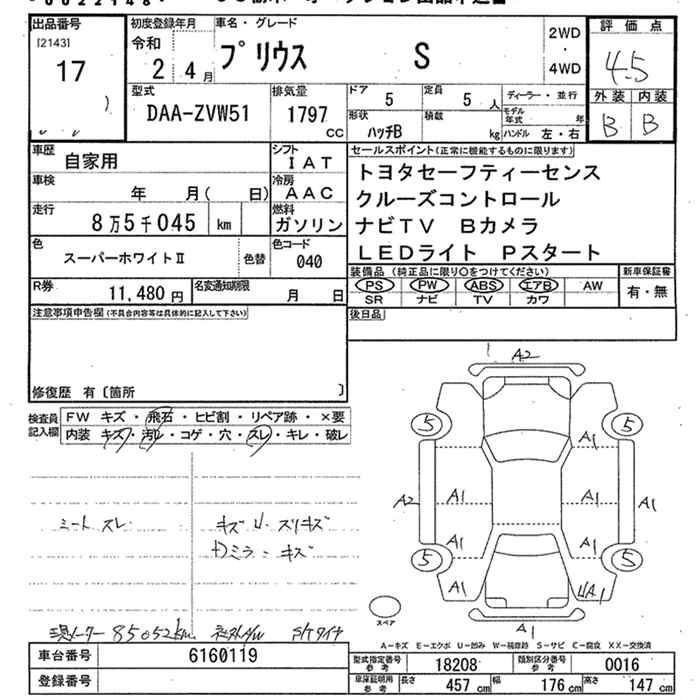 出品番号 初度登録年月 車名・グレード 2WD 評価点
[2143] 令和 プリウス S 4.5
17 2年 4月 4WD
型式 排気量 ドア 5 定員 5人 ディーラー・並行 外装 内装
DAA-ZVW51 1797 cc 形状 ハッチB 積載 kg モデル年式 年 ハンドル 左・右 B B
車歴 自家用 シフト IAT セールスポイント(正常に機能するものに限ります)
車検 年 月( 日) 冷房 AAC トヨタセーフティーセンス
走行 8万5千045 km 燃料 ガソリン クルーズコントロール
ナビTV Bカメラ
色 スーパーホワイトⅡ 色替 色コード 040 LEDライト Pスタート
R券 11,480円 名変通知期限 月 日 装備品(純正品に限り○をつけてください) 新車保証書
PS PW ABS エアB AW 有・無
SR ナビ TV カワ
注意事項申告欄(不具合内容等は具体的に記入して下さい) 後日品
修復歴 有〔箇所 〕
検査員記入欄 FW キズ・飛石・ヒビ割・リペア跡・×要
内装 キズ・汚レ・コゲ・穴・スレ・キレ・破レ
A2
5 5
A1
A2 A1 A1 A1
A1 A1
5 5
A1 UA1
A1
シート スレ キズ U. スリキズ
Dミラー キズ
スペア
現メーター 85052km 社外AW S/Tタイヤ
A-キズ E-エクボ U-凹み W-補修跡 S-サビ C-腐食 XX-交換済
車台番号 6160119 型式指定番号 参考 18208 類別区分番号 参考 0016
登録番号 車庫証明用 参考 長さ 457cm 幅 176cm 高さ 147cm